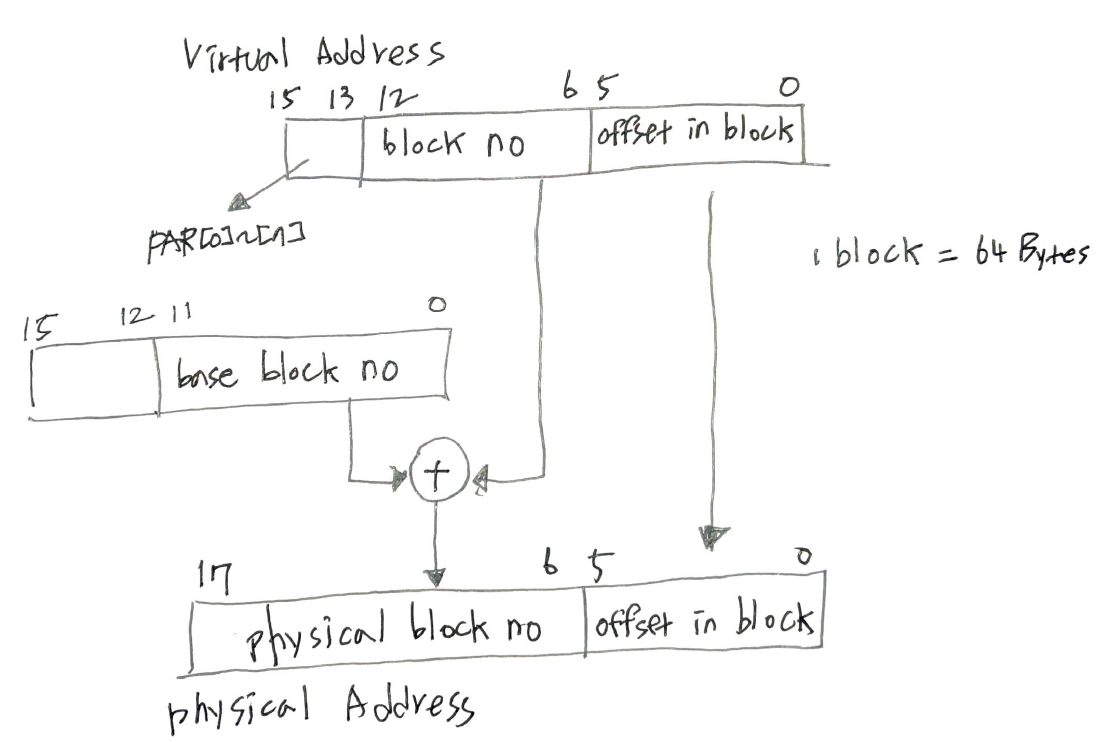 Virtual Address
15 13 12 6 5 0
block no offset in block
PAR[0]~[7]
1 block = 64 Bytes
15 12 11 0
base block no
+
17 6 5 0
physical block no offset in block
physical Address